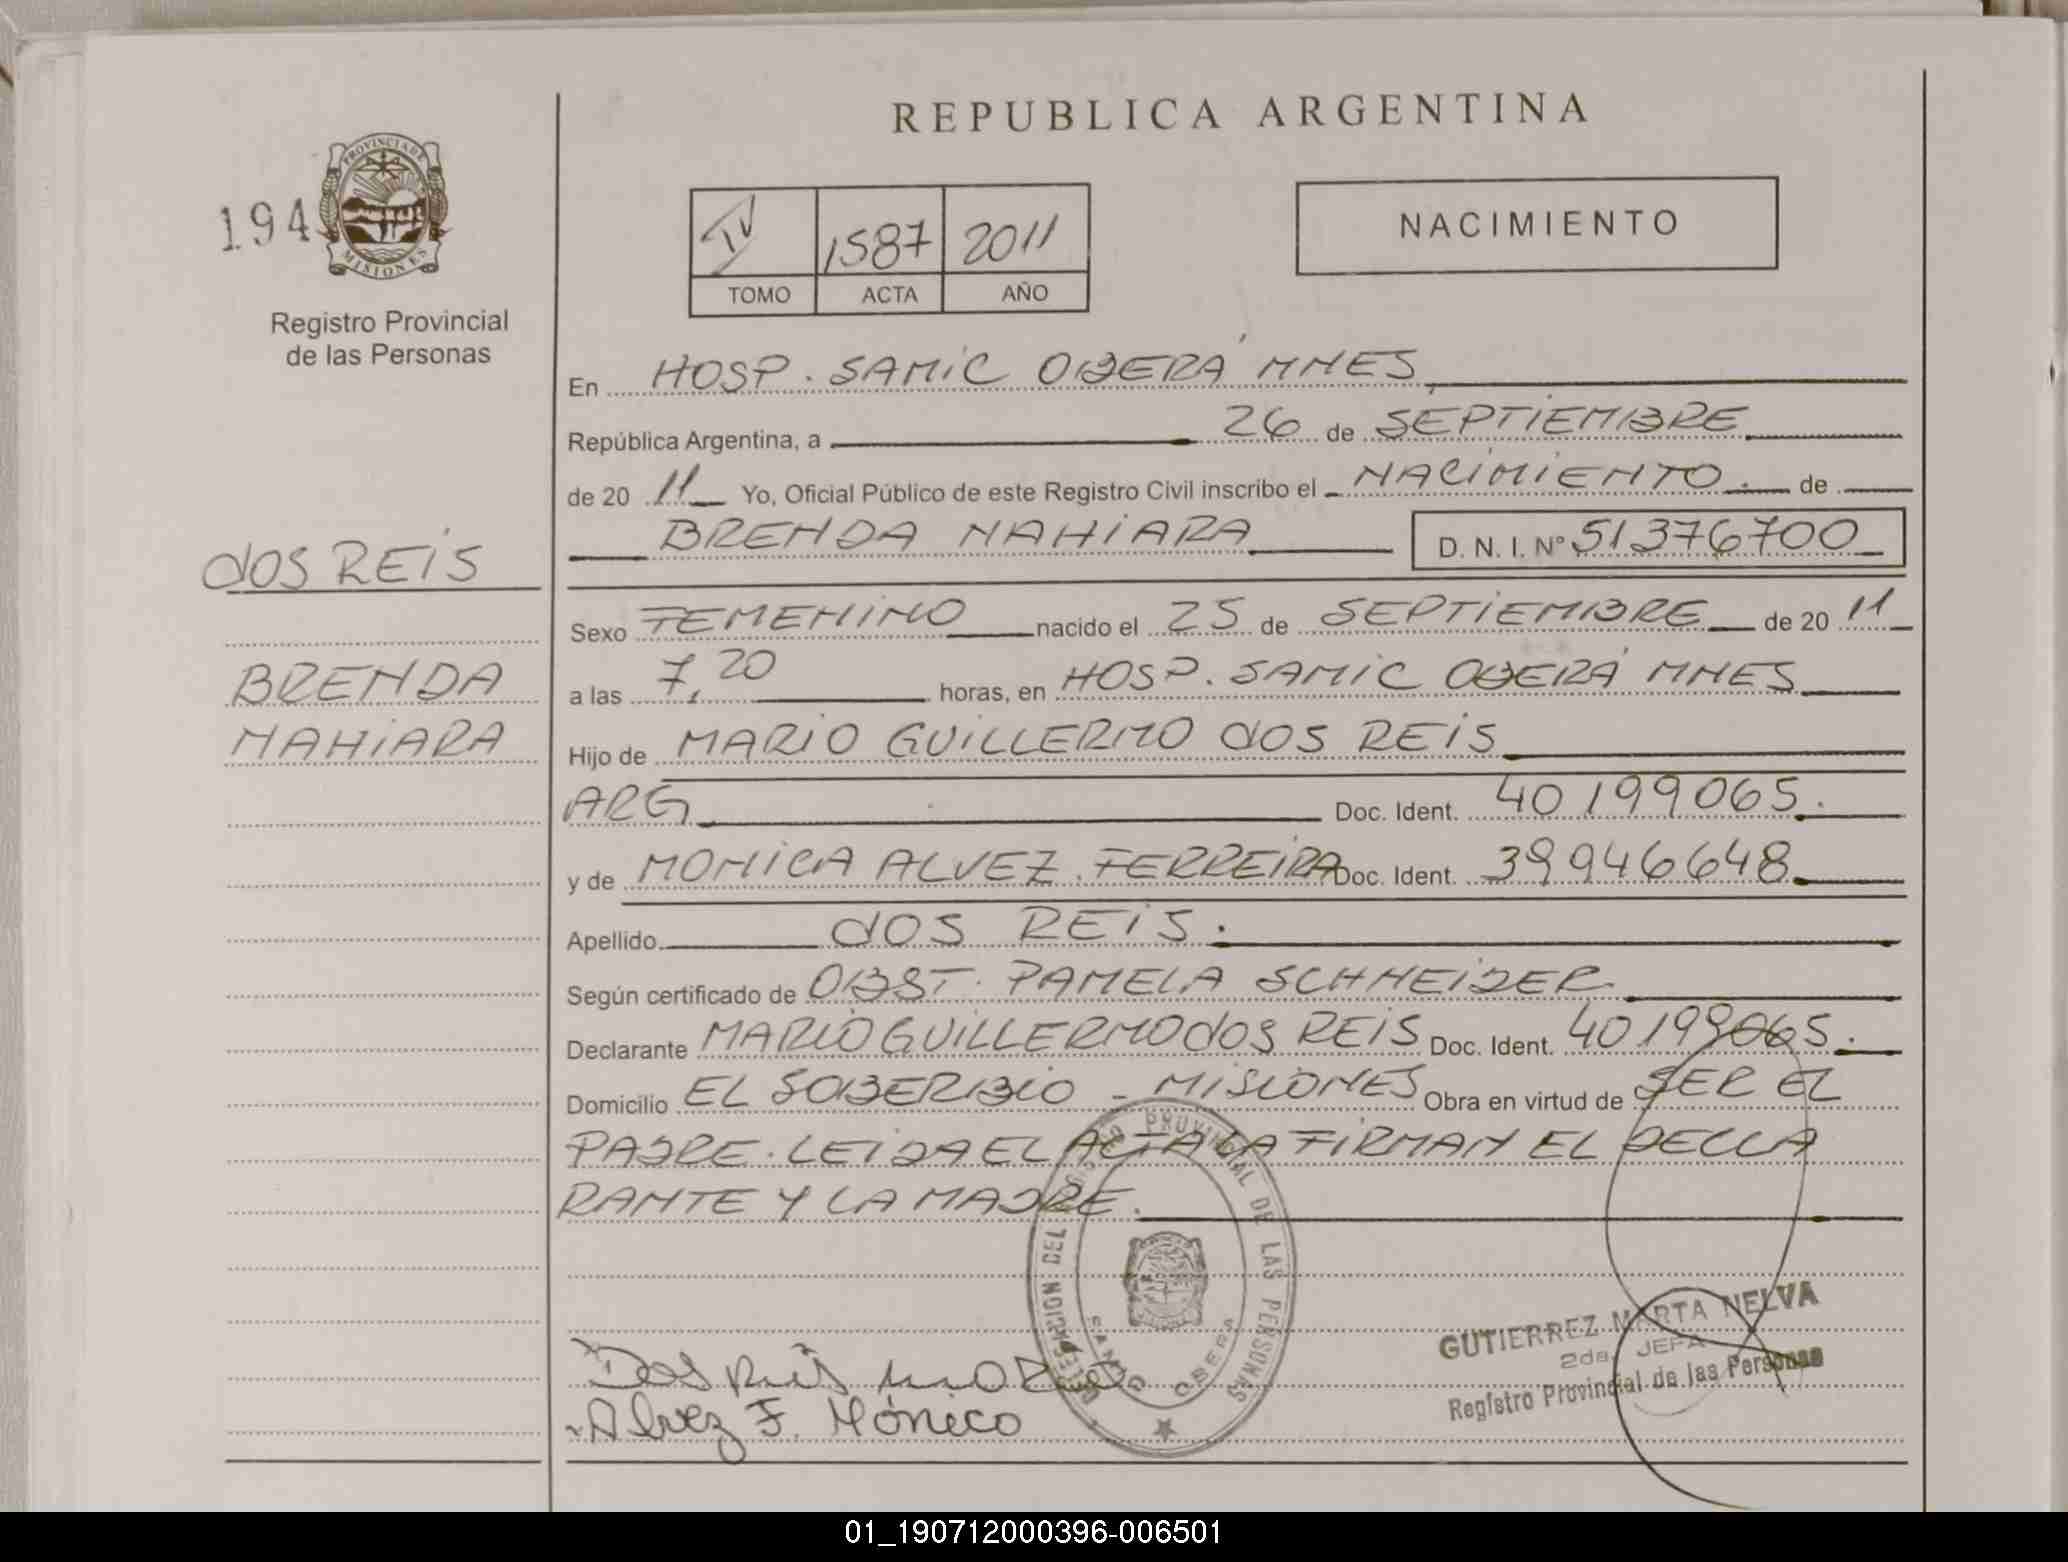 REPUBLICA ARGENTINA
194
PROVINCIA DE
MISIONES
Registro Provincial
de las Personas
IV 1587 2011
TOMO ACTA AÑO
NACIMIENTO
En HOSP. SAMIC OBERÁ MNES
República Argentina, a 26 de SEPTIEMBRE
de 20 11 Yo, Oficial Público de este Registro Civil inscribo el NACIMIENTO. de
BRENDA NAHIARA D. N. I. Nº 51376700
dOS REIS
BRENDA
NAHIARA
Sexo FEMENINO nacido el 25 de SEPTIEMBRE de 20 11
a las 7,20 horas, en HOSP. SAMIC OBERÁ MNES
Hijo de MARIO GUILLERMO dOS REIS
ARG Doc. Ident. 40199065.
y de MONICA ALVEZ FERREIRA Doc. Ident. 39946648
Apellido dOS REIS.
Según certificado de OBST. PAMELA SCHNEIDER
Declarante MARIO GUILLERMO dOS REIS Doc. Ident. 40199065.
Domicilio EL SOBERBIO - MISIONES Obra en virtud de SER EL
PADRE. LEIDA EL ACTA LA FIRMAN EL DECLA
RANTE Y LA MADRE.
DELEGACION DEL REGISTRO PROVINCIAL DE LAS PERSONAS
SAMIC OBERA
GUTIERREZ MARTA NELVA
2da. JEFA
Registro Provincial de las Personas
Dos Reis
Alvez F. Mónica
01_190712000396-006501